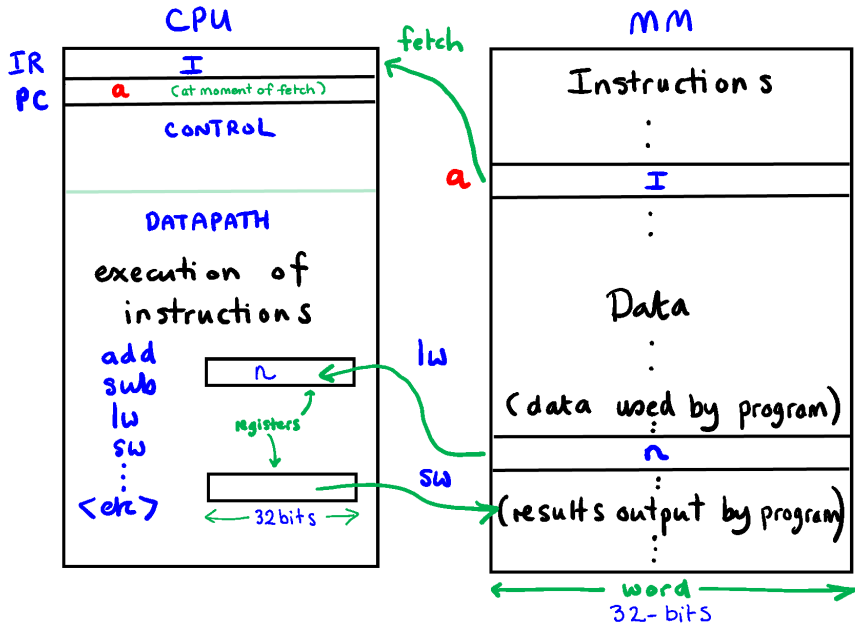 CPU
IR
I
PC
a
(at moment of fetch)
CONTROL
DATAPATH
execution of
instructions
add
sub
lw
sw
⋮
<etc>
n
registers
32 bits
fetch
lw
sw
MM
Instructions
a
I
Data
(data used by program)
n
(results output by program)
word
32-bits